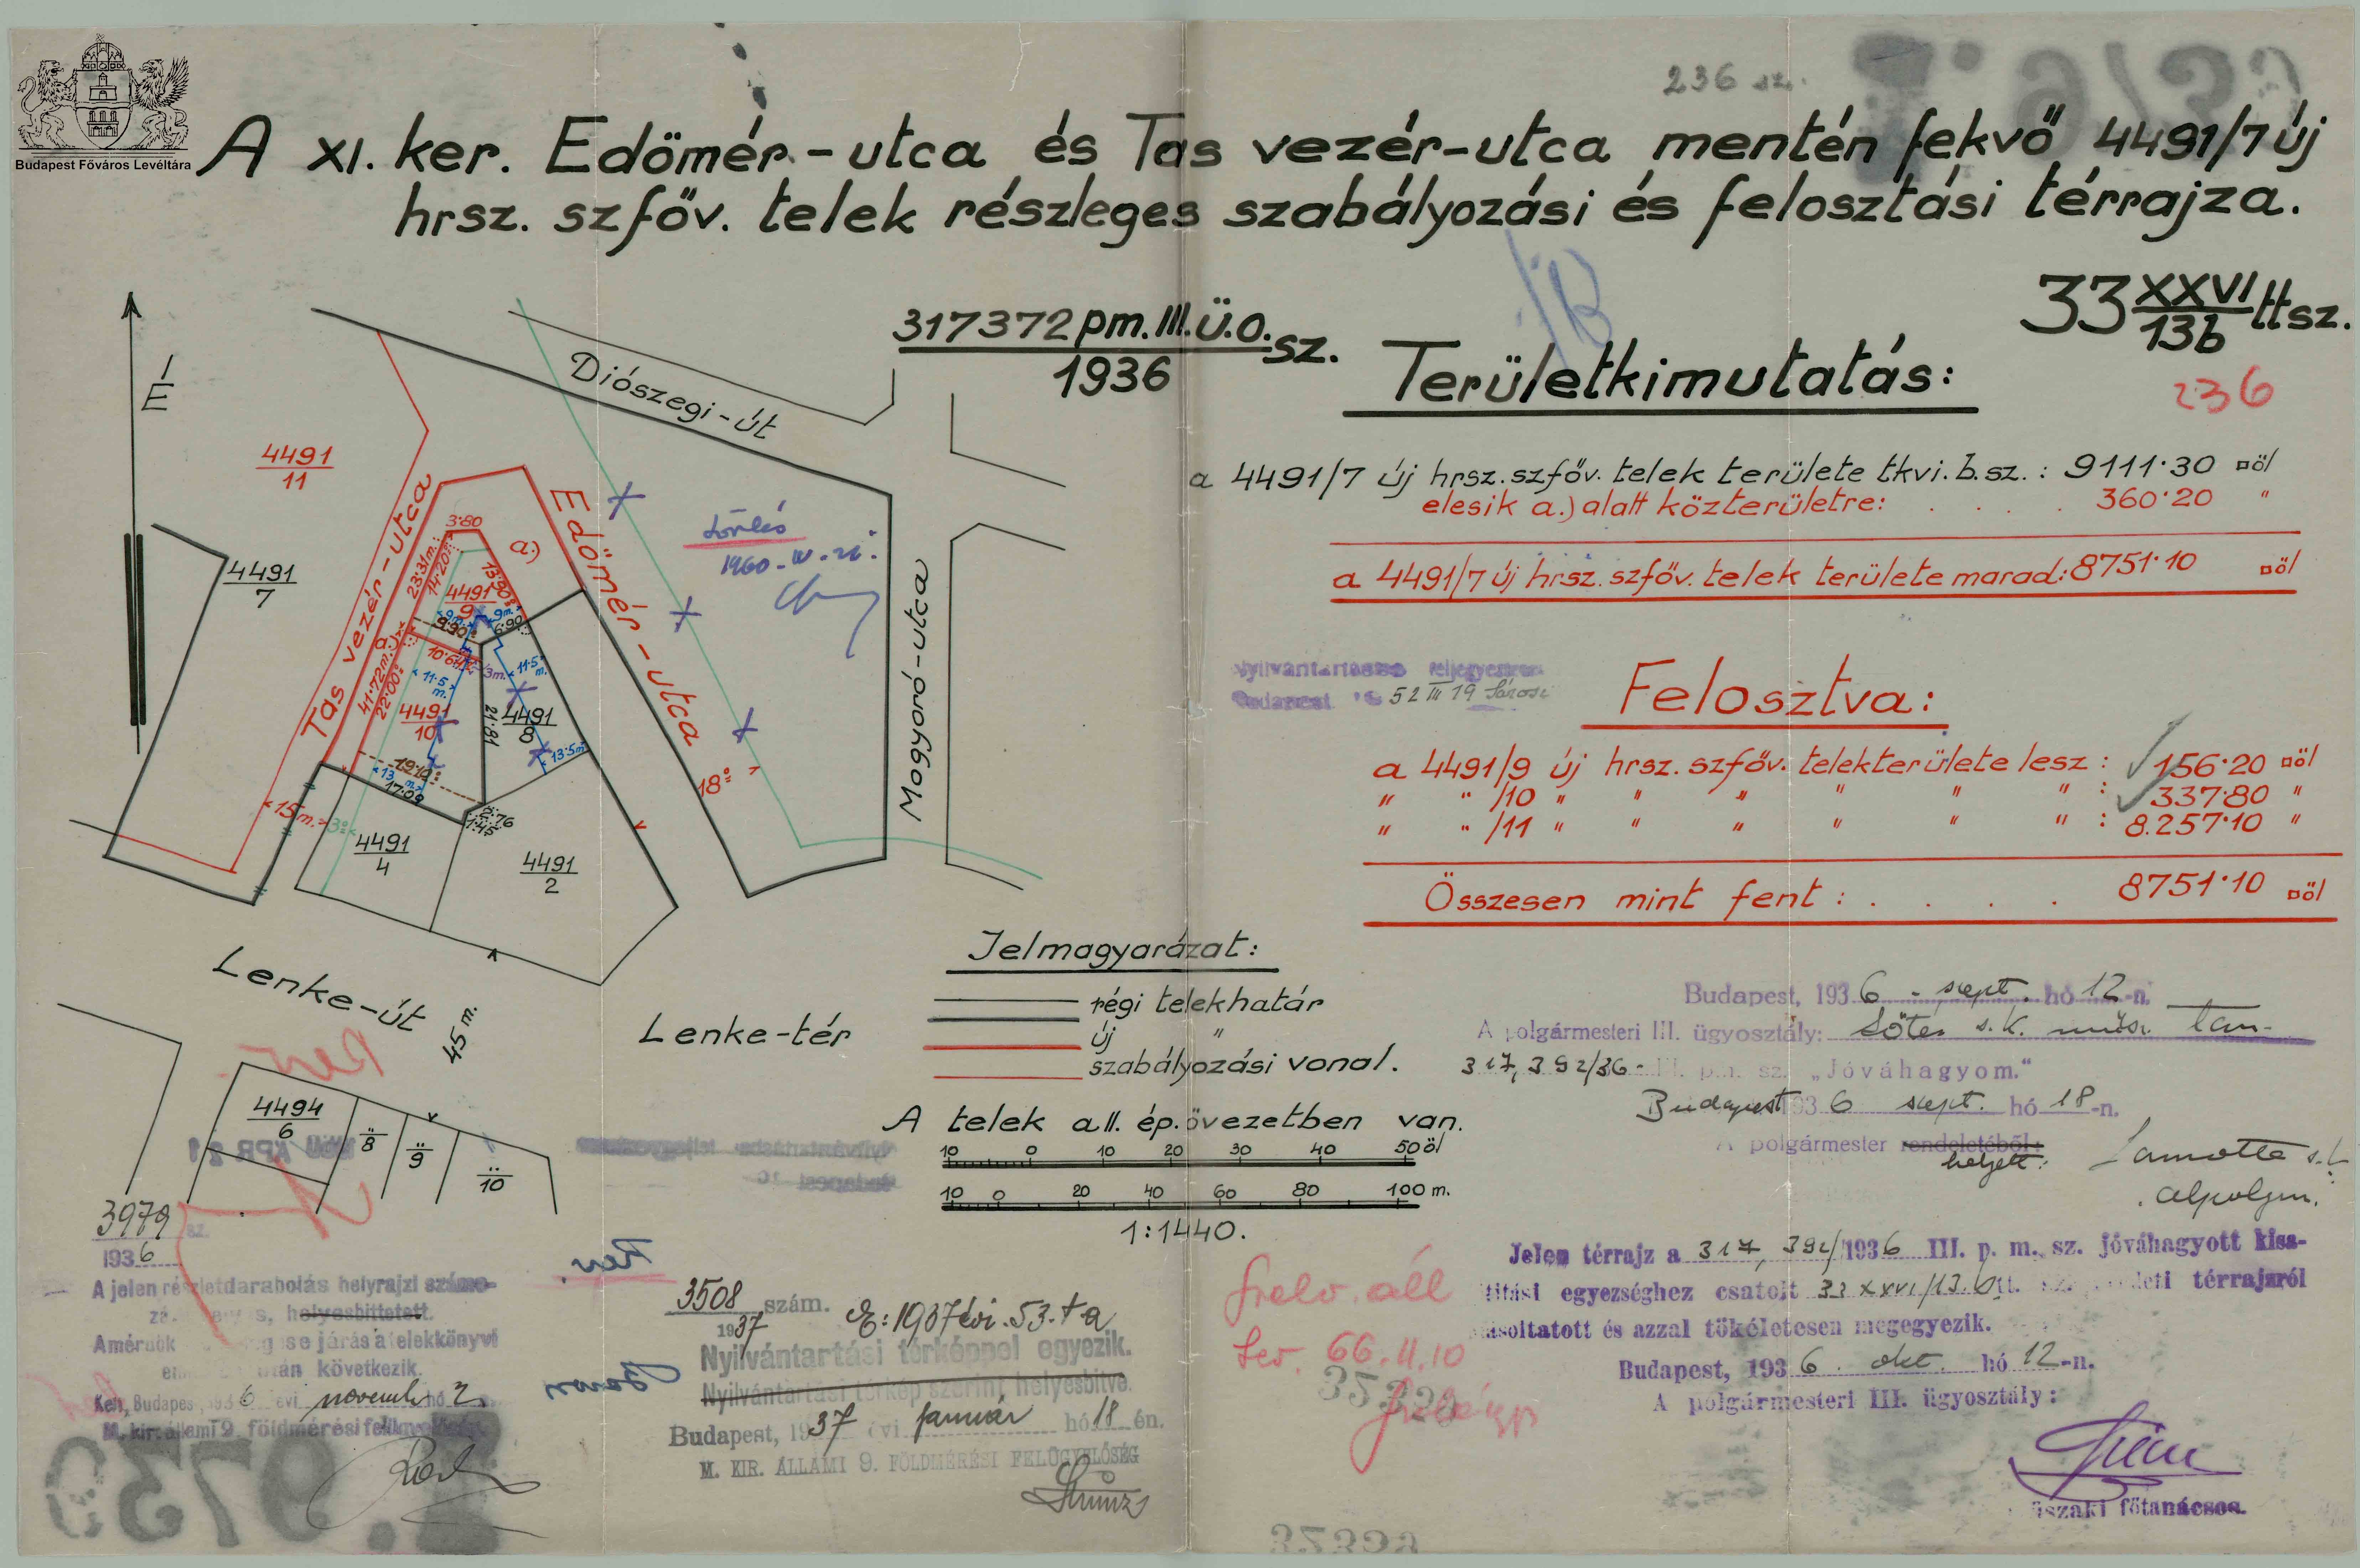 Budapest Főváros Levéltára
236 sz.
A XI. ker. Edömér-utca és Tas vezér-utca mentén fekvő 4491/7 új
hrsz. szföv. telek részleges szabályozási és felosztási térrajza.
317372 pm. III. ü. o. sz.
1936
33 XXVI ttsz.
13b
236
É
Diószegi-út
4491
11
4491
7
Tas vezér-utca
Edömér-utca
Magyaró-utca
törlés
1960
3·80
a.)
23·31m.
14·20°
13·90°
4491
9
9m.
9·90°
6·90
10·64
3m.
11·5 m.
11·5 m.
41·72m.
22·00°
4491
10
21·81
4491
8
13·5m
19·10°
13 m.
17·09
2·76
1·45
18°
15m.
3°
4491
4
4491
2
Lenke-út
45 m.
Lenke-tér
4494
6
" 8
" 9
" 10
Területkimutatás:
a 4491/7 új hrsz. szföv. telek területe tkvi. b. sz. : 9111·30 □öl
elesik a.) alatt közterületre: . . . . 360·20 "
a 4491/7 új hrsz. szföv. telek területe marad: 8751·10 □öl
Budapest 1952 III 19
Felosztva:
a 4491/9 új hrsz. szföv. telekterülete lesz : 156·20 □öl
" " /10 " " " " " " : 337·80 "
" " /11 " " " " " " : 8.257·10 "
Összesen mint fent : . . . . 8751·10 □öl
Jelmagyarázat:
régi telekhatár
új "
szabályozási vonal.
A telek a II. ép. övezetben van.
10 0 10 20 30 40 50 öl
10 0 20 40 60 80 100 m.
1:1440.
Budapest, 1936. szept. hó 12-n.
A polgármesteri III. ügyosztály: s. k. műsz. tan.
317,392/36- III. p.m. sz. „Jóváhagyom."
Budapest 1936 szept. hó 18-n.
A polgármester rendeletéből:
helyett: Lamotte s. k.
alpolgm.
Jelen térrajz a 317,392/1936 III. p. m. sz. jóváhagyott kisa-
títási egyezséghez csatolt 33 XXVI/13.b tt. sz. eredeti térrajzról
másoltatott és azzal tökéletesen megegyezik.
Budapest, 1936. okt. hó 12-n.
A polgármesteri III. ügyosztály:
műszaki főtanácsos.
3979 sz.
1936
A jelen részletdarabolás helyrajzi számo-
zá. s, helyesbittetett.
A mérnök se járás a telekkönyvi
után következik.
Kelt, Budapest, 1936 évi november hó 2.
M. kir. állami 9. földmérési felügyelőség
3508 szám. E: 1937 évi. 53. t-a
1937
Nyilvántartási térképpel egyezik.
Nyilvántartási térkép szerint helyesbítve.
Budapest, 1937 évi január hó 18 én.
M. KIR. ÁLLAMI 9. FÖLDMÉRÉSI FELÜGYELŐSÉG
66. II. 10